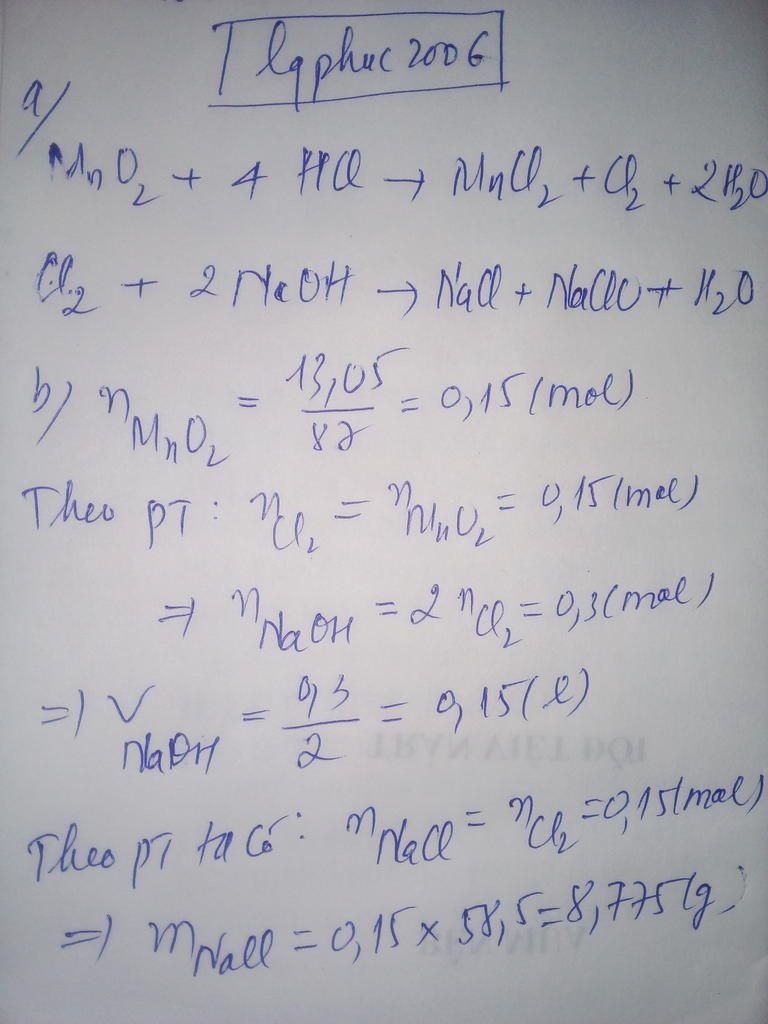 lqphuc2006
a/
MnO2 + 4 HCl → MnCl2 + Cl2 + 2H2O
Cl2 + 2 NaOH → NaCl + NaClO + H2O
b) nMnO2 = 13,05/87 = 0,15 (mol)
Theo pT : nCl2 = nMnO2 = 0,15 (mol)
⇒ nNaOH = 2 nCl2 = 0,3 (mol)
⇒ VNaOH = 0,3/2 = 0,15 (l)
Theo pT ta có : nNaCl = nCl2 = 0,15 (mol)
⇒ mNaCl = 0,15 × 58,5 = 8,775 (g)